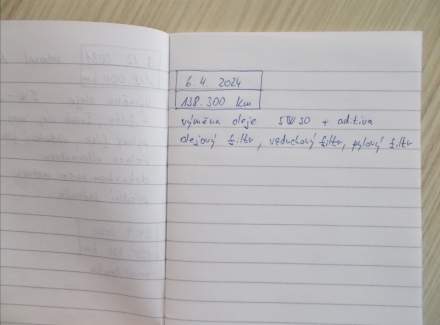 6 4 2024
138.300 km
výměna oleje 5W30 + aditiva
olejový filtr, vzduchový filtr, pylový filtr